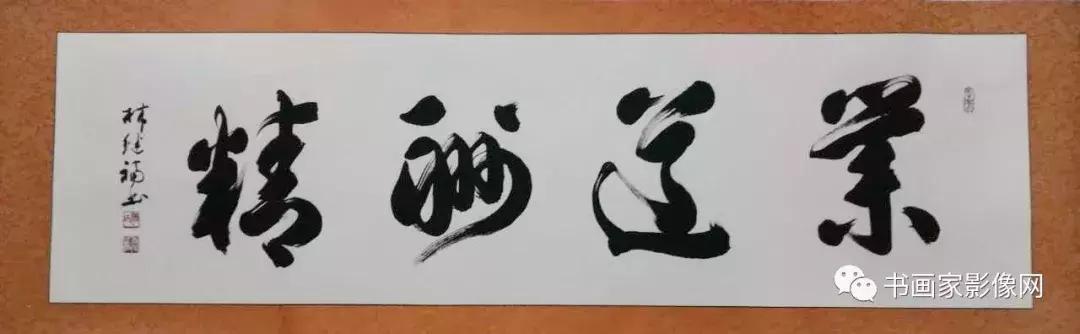 業道酬精
林继福书
书画家影像网